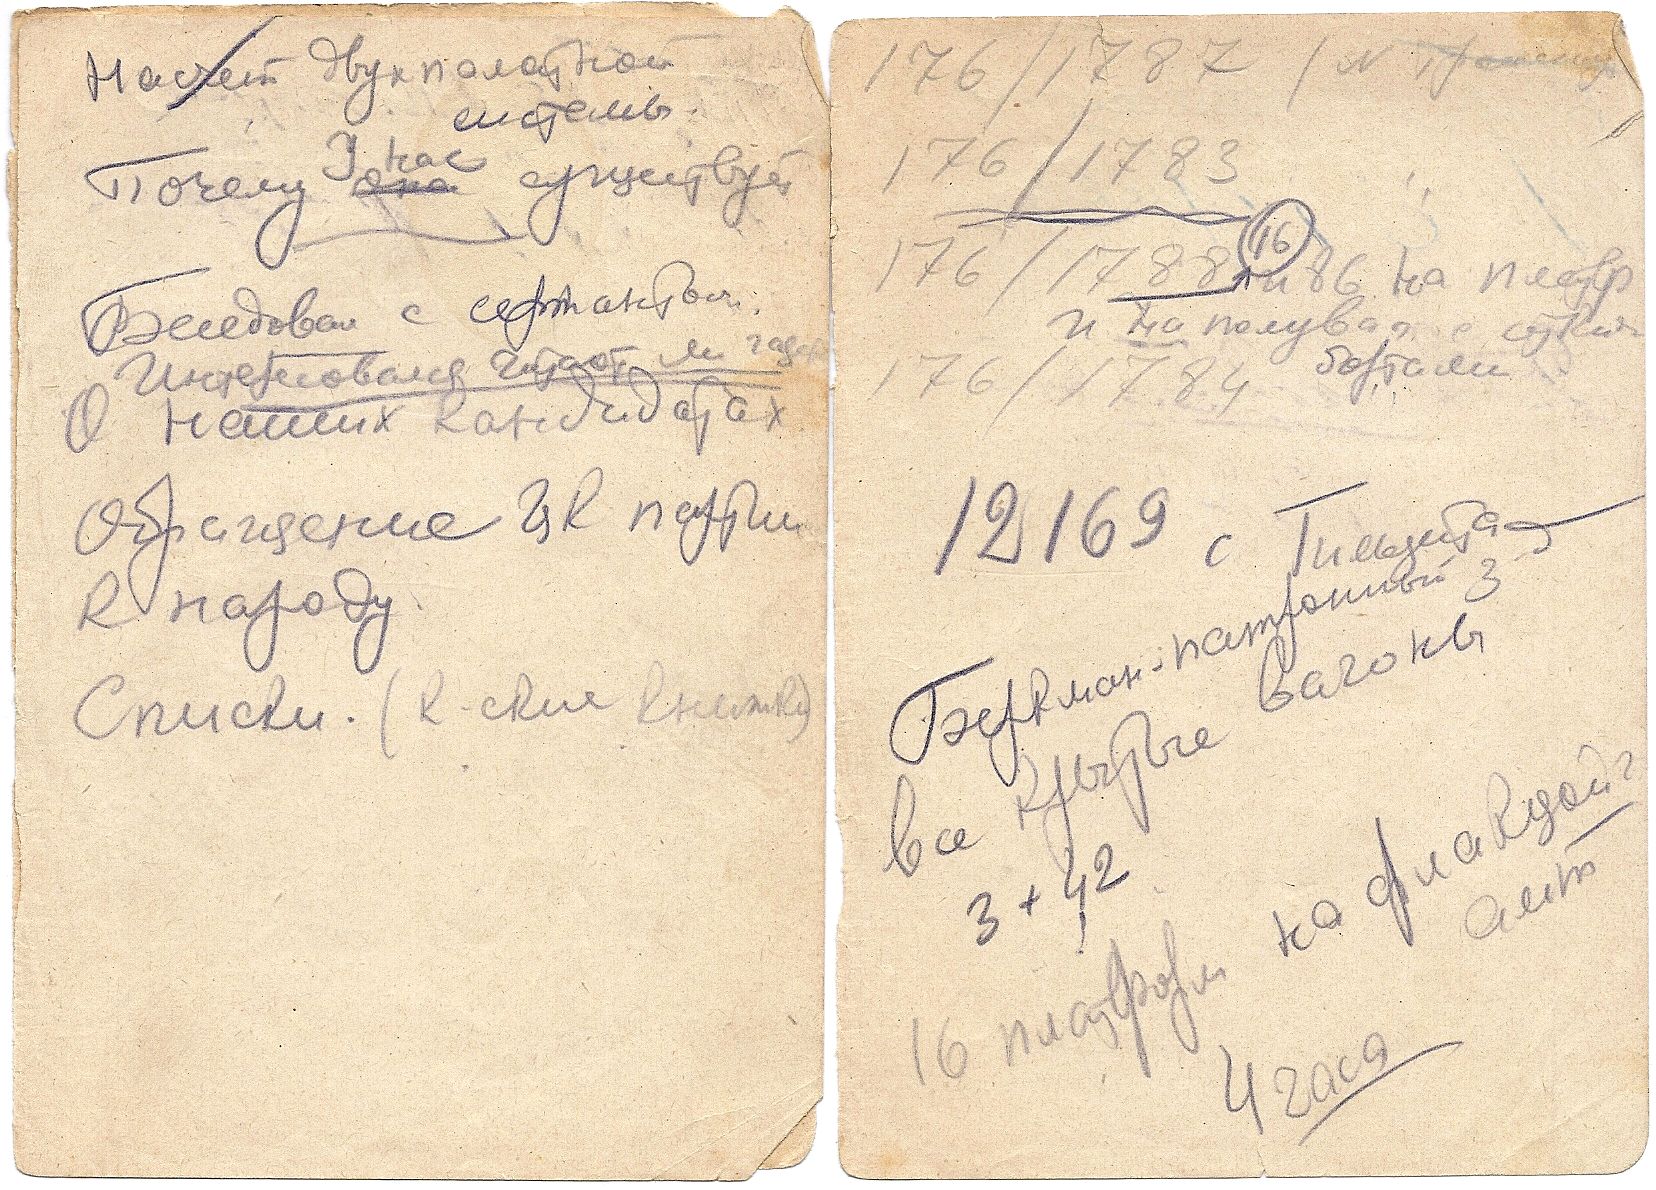 Насчет двухпалатной
системы.
У нас
Почему она существует
Беседовал с сержантом.
Интересовался читают ли
О наших кандидатах
Обращение ЦК партии
к народу.
Списки. (к-ские книжки)
176/1787 (
176/1783
16
176/1788 и 86 на платф
и на полуваг с
бортами
176/1784
12169 с Тильзита
3
Беркман-патронный
все крытые вагоны
3 + 42
16 платформ на
4 часа